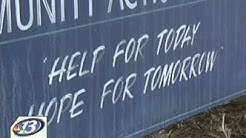 MUNITY ACTIO
"HELP FOR TODAY
HOPE FOR TOMORROW"
13